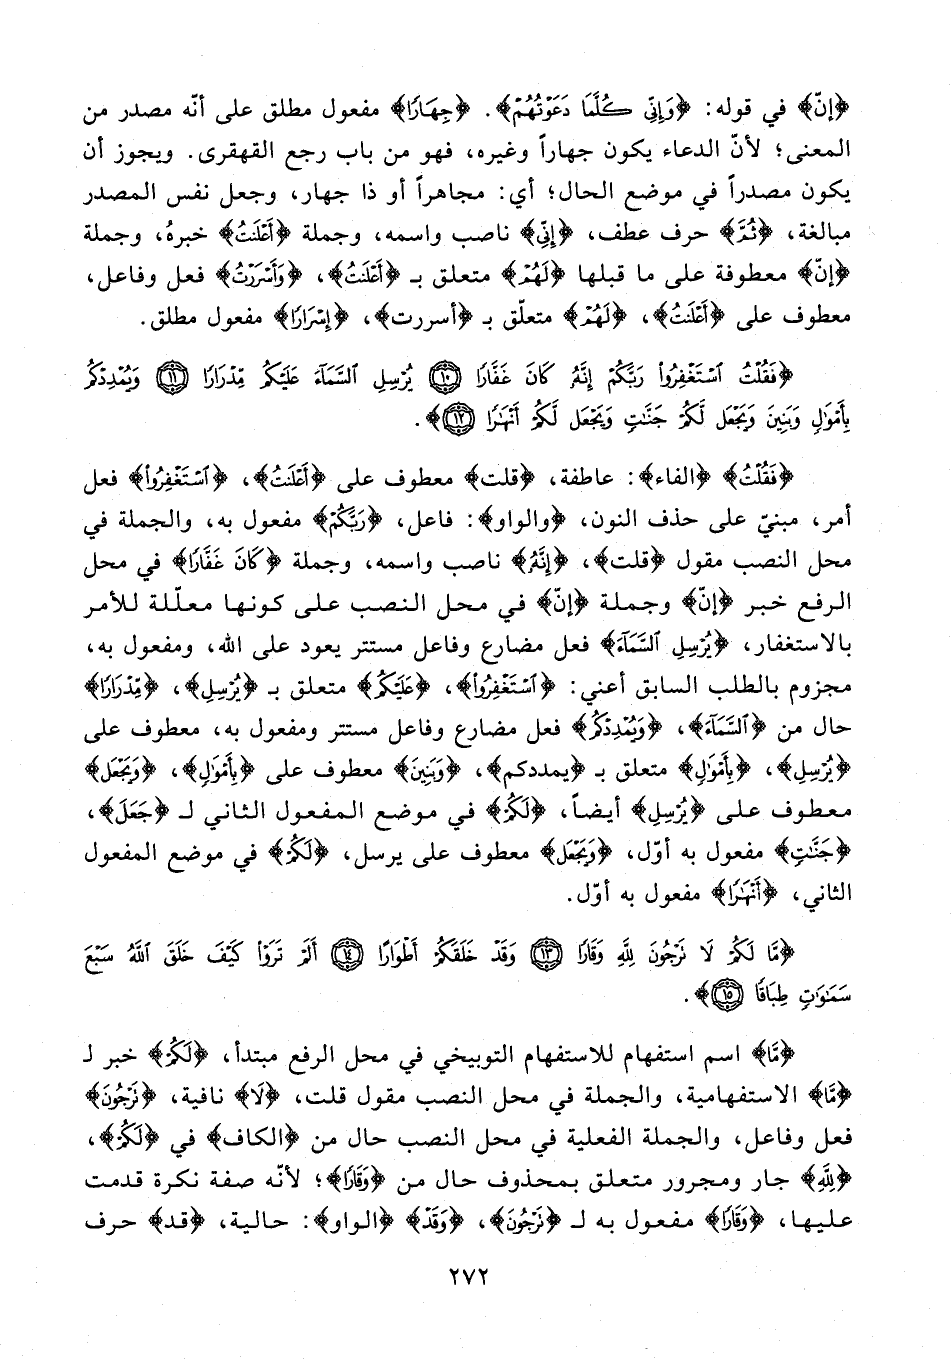 ﴿إنّ﴾ في قوله: ﴿وَإِنِّي كُلَّمَا دَعَوْتُهُمْ﴾. ﴿جِهَارًا﴾ مفعول مطلق على أنّه مصدر من
المعنى؛ لأنّ الدعاء يكون جهاراً وغيره، فهو من باب رجع القهقرى. ويجوز أن
يكون مصدراً في موضع الحال؛ أي: مجاهراً أو ذا جهار، وجعل نفس المصدر
مبالغة، ﴿ثُمَّ﴾ حرف عطف، ﴿إِنِّي﴾ ناصب واسمه، وجملة ﴿أَعْلَنتُ﴾ خبرهُ، وجملة
﴿إنّ﴾ معطوفة على ما قبلها ﴿لَهُمْ﴾ متعلق بـ ﴿أَعْلَنتُ﴾، ﴿وَأَسْرَرْتُ﴾ فعل وفاعل،
معطوف على ﴿أَعْلَنتُ﴾، ﴿لَهُمْ﴾ متعلّق بـ ﴿أسررت﴾، ﴿إِسْرَارًا﴾ مفعول مطلق.
﴿فَقُلْتُ ٱسْتَغْفِرُوا۟ رَبَّكُمْ إِنَّهُۥ كَانَ غَفَّارًا ١٠ يُرْسِلِ ٱلسَّمَآءَ عَلَيْكُم مِّدْرَارًا ١١ وَيُمْدِدْكُم
بِأَمْوَٰلٍ وَبَنِينَ وَيَجْعَل لَّكُمْ جَنَّٰتٍ وَيَجْعَل لَّكُمْ أَنْهَٰرًا ١٢﴾.
﴿فَقُلْتُ﴾ ﴿الفاء﴾: عاطفة، ﴿قلت﴾ معطوف على ﴿أَعْلَنتُ﴾، ﴿ٱسْتَغْفِرُوا۟﴾ فعل
أمر، مبنيّ على حذف النون، ﴿والواو﴾: فاعل، ﴿رَبَّكُمْ﴾ مفعول به، والجملة في
محل النصب مقول ﴿قلت﴾، ﴿إِنَّهُۥ﴾ ناصب واسمه، وجملة ﴿كَانَ غَفَّارًا﴾ في محل
الرفع خبر ﴿إنّ﴾ وجملة ﴿إنّ﴾ في محل النصب على كونها معلّلة للأمر
بالاستغفار، ﴿يُرْسِلِ ٱلسَّمَآءَ﴾ فعل مضارع وفاعل مستتر يعود على الله، ومفعول به،
مجزوم بالطلب السابق أعني: ﴿ٱسْتَغْفِرُوا۟﴾، ﴿عَلَيْكُم﴾ متعلق بـ ﴿يُرْسِلِ﴾، ﴿مِّدْرَارًا﴾
حال من ﴿ٱلسَّمَآءَ﴾، ﴿وَيُمْدِدْكُم﴾ فعل مضارع وفاعل مستتر ومفعول به، معطوف على
﴿يُرْسِلِ﴾، ﴿بِأَمْوَٰلٍ﴾ متعلق بـ ﴿يمددكم﴾، ﴿وَبَنِينَ﴾ معطوف على ﴿بِأَمْوَٰلٍ﴾، ﴿وَيَجْعَل﴾
معطوف على ﴿يُرْسِلِ﴾ أيضاً، ﴿لَكُمْ﴾ في موضع المفعول الثاني لـ ﴿جَعَلَ﴾،
﴿جَنَّٰتٍ﴾ مفعول به أوّل، ﴿وَيَجْعَل﴾ معطوف على يرسل، ﴿لَكُمْ﴾ في موضع المفعول
الثاني، ﴿أَنْهَٰرًا﴾ مفعول به أوّل.
﴿مَّا لَكُمْ لَا تَرْجُونَ لِلَّهِ وَقَارًا ١٣ وَقَدْ خَلَقَكُمْ أَطْوَارًا ١٤ أَلَمْ تَرَوْا۟ كَيْفَ خَلَقَ ٱللَّهُ سَبْعَ
سَمَٰوَٰتٍ طِبَاقًا ١٥﴾.
﴿مَّا﴾ اسم استفهام للاستفهام التوبيخي في محل الرفع مبتدأ، ﴿لَكُمْ﴾ خبر لـ
﴿مَّا﴾ الاستفهامية، والجملة في محل النصب مقول قلت، ﴿لَا﴾ نافية، ﴿تَرْجُونَ﴾
فعل وفاعل، والجملة الفعلية في محل النصب حال من ﴿الكاف﴾ في ﴿لَكُمْ﴾،
﴿لِلَّهِ﴾ جار ومجرور متعلق بمحذوف حال من ﴿وَقَارًا﴾؛ لأنّه صفة نكرة قدمت
عليها، ﴿وَقَارًا﴾ مفعول به لـ ﴿تَرْجُونَ﴾، ﴿وَقَدْ﴾ ﴿الواو﴾: حالية، ﴿قد﴾ حرف
٢٧٢